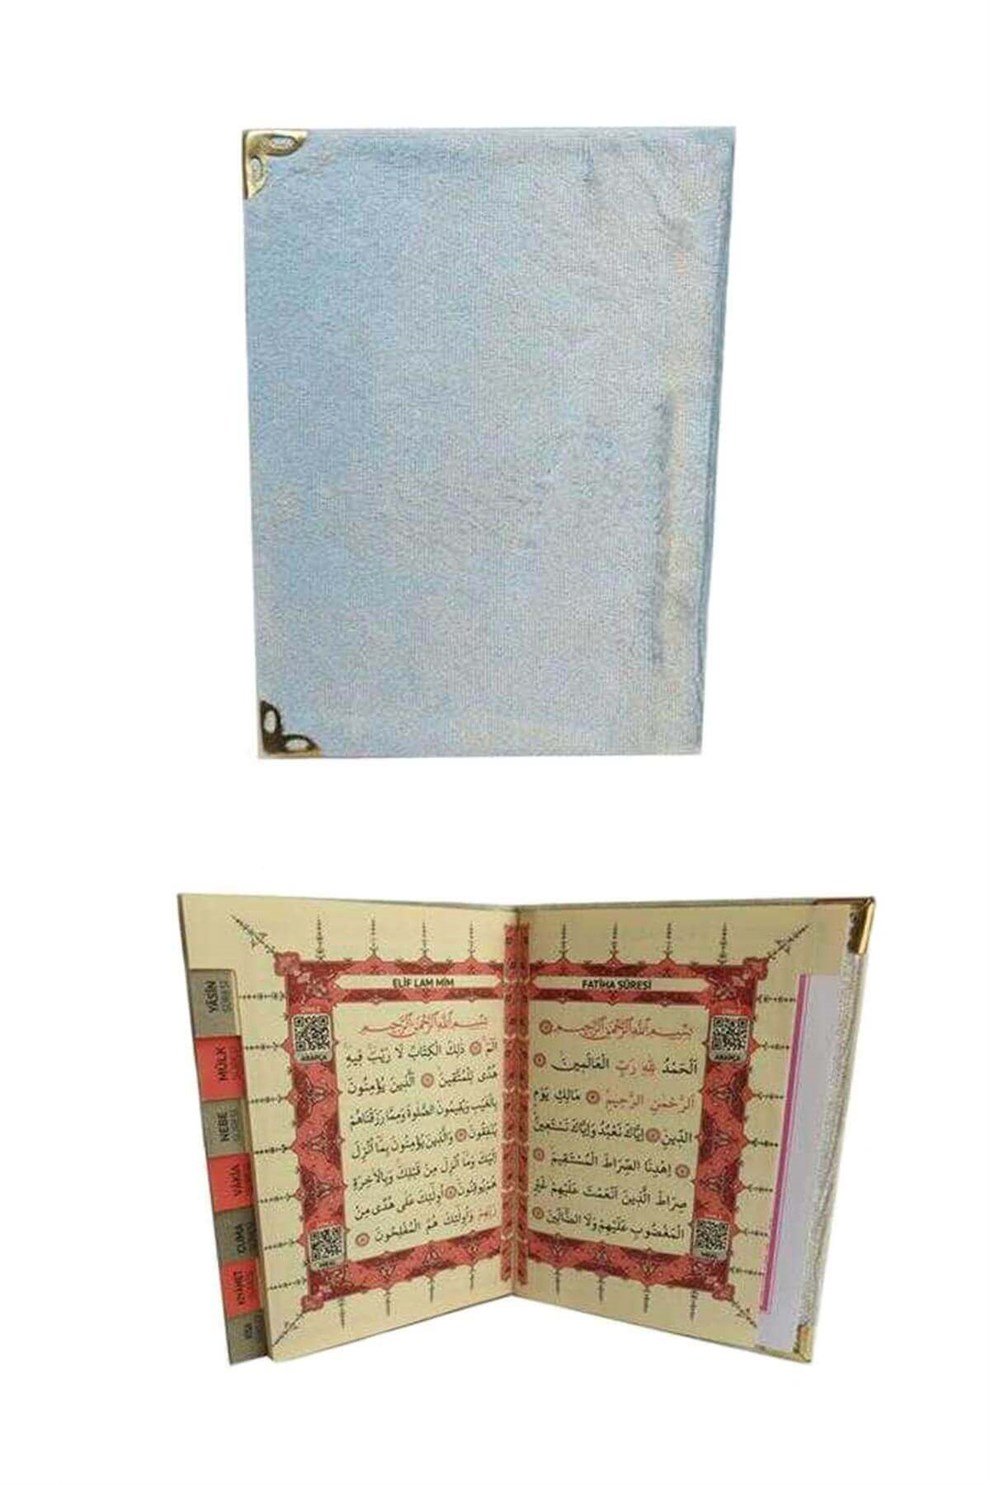 FATİHA SÛRESİ
بِسْمِ اللّٰهِ الرَّحْمٰنِ الرَّحِيمِ
اَلْحَمْدُ لِلّٰهِ رَبِّ الْعَالَمِينَ
اَلرَّحْمٰنِ الرَّحِيمِ مَالِكِ يَوْمِ
الدِّينِ اِيَّاكَ نَعْبُدُ وَاِيَّاكَ نَسْتَعِينُ
اِهْدِنَا الصِّرَاطَ الْمُسْتَقِيمَ
صِرَاطَ الَّذِينَ اَنْعَمْتَ عَلَيْهِمْ غَيْرِ
الْمَغْضُوبِ عَلَيْهِمْ وَلَا الضَّالِّينَ
ARAPÇA
ELİF LAM MİM
بِسْمِ اللّٰهِ الرَّحْمٰنِ الرَّحِيمِ
الٓمٓ ذٰلِكَ الْكِتَابُ لَا رَيْبَ فِيهِ
هُدًى لِلْمُتَّقِينَ اَلَّذِينَ يُؤْمِنُونَ
بِالْغَيْبِ وَيُقِيمُونَ الصَّلٰوةَ وَمِمَّا رَزَقْنَاهُمْ
يُنْفِقُونَ وَالَّذِينَ يُؤْمِنُونَ بِمَا اُنْزِلَ
اِلَيْكَ وَمَا اُنْزِلَ مِنْ قَبْلِكَ وَبِالْاٰخِرَةِ
هُمْ يُوقِنُونَ اُولٰئِكَ عَلٰى هُدًى مِنْ
رَبِّهِمْ وَاُولٰئِكَ هُمُ الْمُفْلِحُونَ
ARAPÇA
YÂSİN
SÛRESİ
MÜLK
NEBE
VAKIA
CUMA
KIYAMET